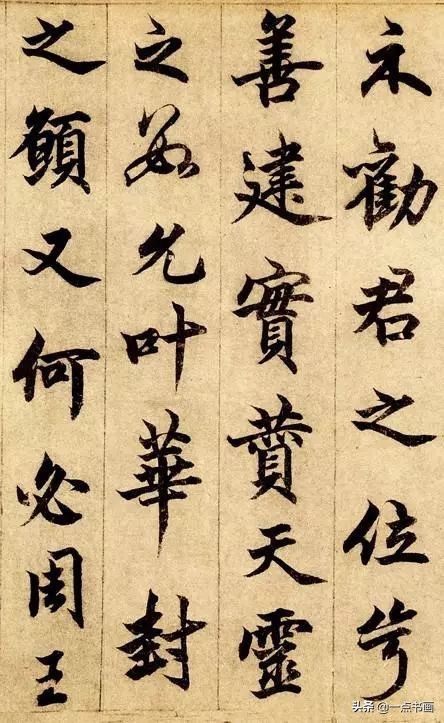 勸君之位
善建實蕡天靈
之允叶華封
之願又何必周王
头条 @一点书画